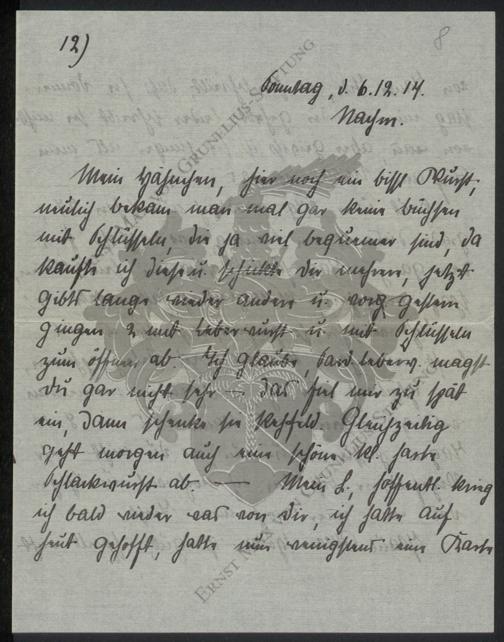 12)
8
Sonntag, d. 6.12.14.
Nachm.
Mein Hähnchen, hier noch ein bissl Wurst,
neulich bekam man mal gar keine büchsen
mit Schlüsseln, die ja viel bequemer sind, da
kaufte ich diese u. schickte Dir mehrere, jetzt
gibts lange wieder andere u. vorg. gestern
gingen 2 mit Leberwurst u. mit Schlüsseln
zum öffnen ab. Ich glaube, Sard.leberw. magst
Du gar nicht sehr — das fiel mir zu spät
ein, dann schenke sie Gleichzeitig
geht morgen auch eine schöne kl. harte
Schlackwurst ab. — Mein L., hoffentl. krieg
ich bald wieder was von Dir, ich hatte auf
heut gehofft, hatte nun wenigstens eine Karte
GRUNELIUS-STIFTUNG
ERNST